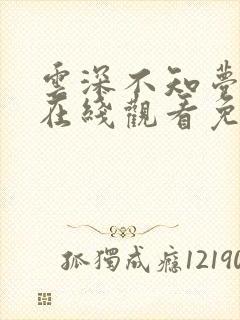 雲深不知夢
在綫觀看免
孤獨成癮12190